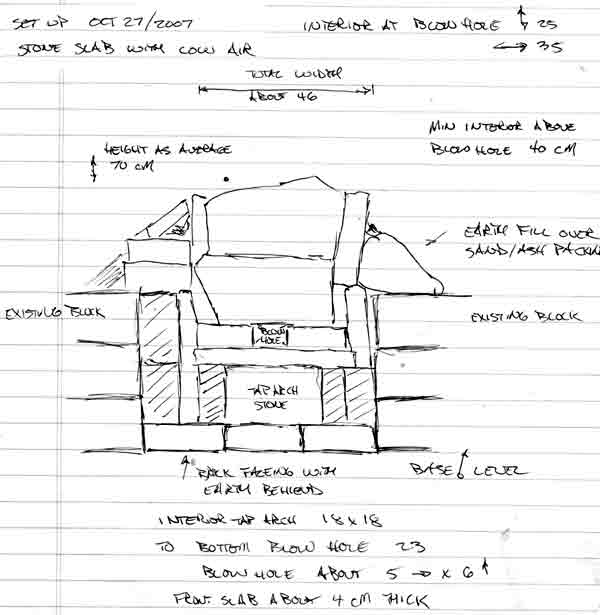 SET UP OCT 27/2007
INTERIOR AT BLOW HOLE ↕ 25
STONE SLAB WITH COW AIR
↔ 35
TOTAL WIDTH
ABOUT 46
MIN INTERIOR ABOVE
BLOW HOLE 40 CM
HEIGHT AS AVERAGE
70 CM
EARTH FILL OVER
SAND/ASH PACKIN
EXISTING BLOCK
EXISTING BLOCK
BLOW
HOLE
TAP ARCH
STONE
BASE LEVEL
BACK FACEING WITH
EARTH BEHIEND
INTERIOR TAP ARCH 18 x 18
TO BOTTOM BLOW HOLE 23
BLOW HOLE ABOUT 5 → x 6 ↑
FRONT SLAB ABOUT 4 CM THICK